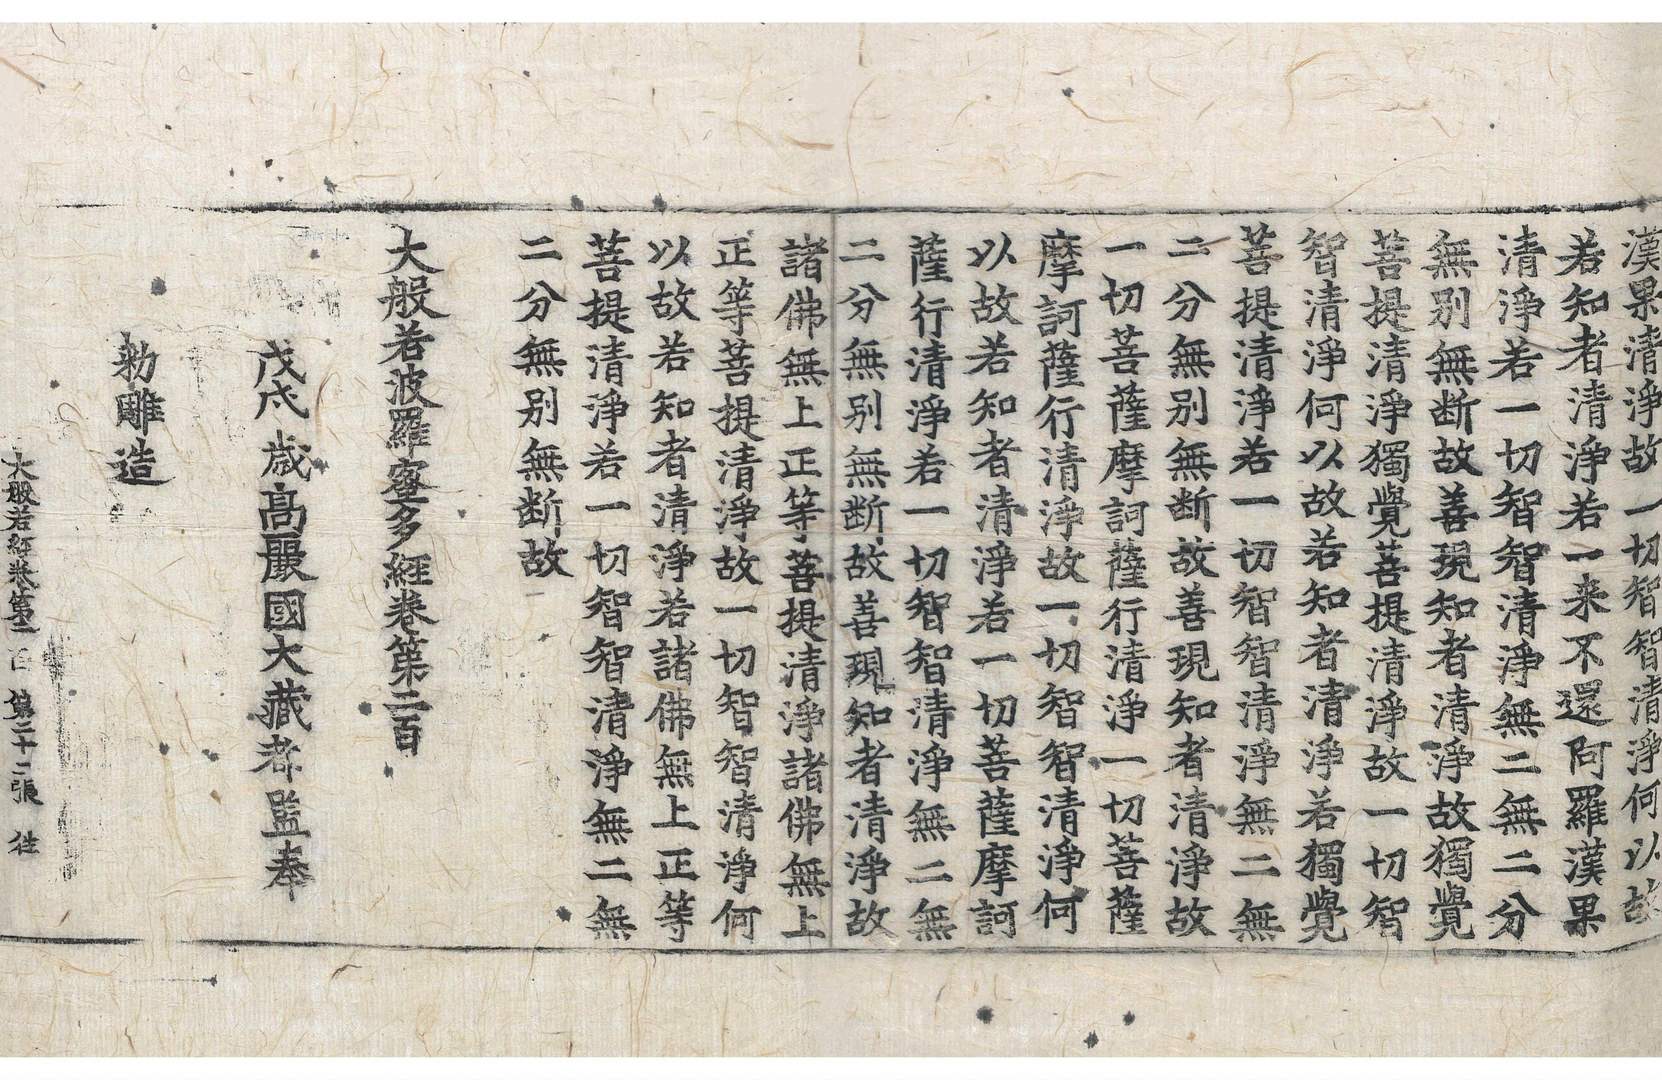 漢果清淨故一切智智清淨何以故
若知者清淨若一来不還阿羅漢果
清淨若一切智智清淨無二無二分
無別無断故善現知者清淨故獨覺
菩提清淨獨覺菩提清淨故一切智
智清淨何以故若知者清淨若獨覺
菩提清淨若一切智智清淨無二無
二分無別無断故善現知者清淨故
一切菩薩摩訶薩行清淨一切菩薩
摩訶薩行清淨故一切智智清淨何
以故若知者清淨若一切菩薩摩訶
薩行清淨若一切智智清淨無二無
二分無別無断故善現知者清淨故
諸佛無上正等菩提清淨諸佛無上
正等菩提清淨故一切智智清淨何
以故若知者清淨若諸佛無上正等
菩提清淨若一切智智清淨無二無
二分無別無断故
大般若波羅蜜多經卷第二百
戊戌歲髙麗國大藏都監奉
勑雕造
大般若經卷第二百 第二十二張 往